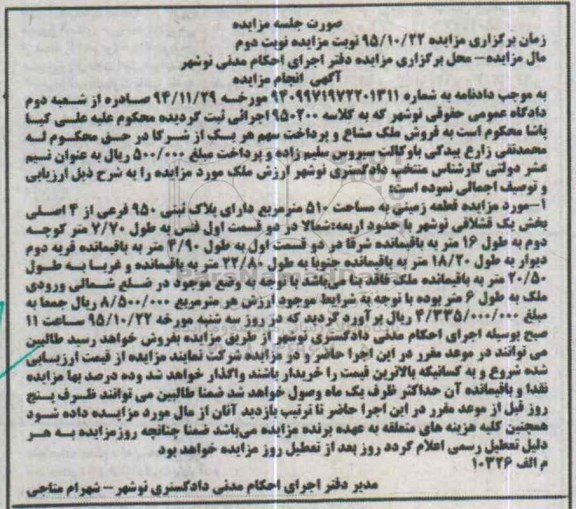 صورت جلسه مزایده
زمان برگزاری مزایده ۹۵/۱۰/۲۲ نوبت مزایده نوبت دوم
مال مزایده - محل برگزاری مزایده دفتر اجرای احکام مدنی نوشهر
آگهی انجام مزایده
به موجب دادنامه به شماره ۹۴۰۹۹۷۱۹۷۲۲۰۱۳۱۱ مورخه ۹۴/۱۱/۲۹ صادره از شعبه دوم
دادگاه عمومی حقوقی نوشهر که به کلاسه ۹۵۰۲۰۰ اجرائی ثبت گردیده محکوم علیه علی کیا
پاشا محکوم است به فروش ملک مشاع و پرداخت سهم هر یک از شرکا در حق محکوم له
محمدتقی زارع بیدکی باوکالت سیروس سلیم زاده و پرداخت مبلغ ۵۰۰/۰۰۰ ریال به عنوان نیم
عشر دولتی کارشناس منتخب دادگستری نوشهر ارزش ملک مورد مزایده را به شرح ذیل ارزیابی
و توصیف اجمالی نموده است:
۱-مورد مزایده قطعه زمینی به مساحت ۵۱۰ مترمربع دارای پلاک ثبتی ۹۵۰ فرعی از ۴ اصلی
بخش یک قشلاقی نوشهر با حدود اربعه: شمالا در دو قسمت اول فنس به طول ۷/۷۰ متر کوچه
دوم به طول ۱۶ متر به باقیمانده شرقا در دو قسمت اول به طول ۴/۹۰ متر به باقیمانده قریه دوم
دیوار به طول ۱۸/۲۰ متر به باقیمانده جنوبا به طول ۲۲/۸۰ متر به باقیمانده و غربا به طول
۲۰/۵۰ متر به باقیمانده ملک فاقد بنا می‌باشد با توجه به وضع موجود در ضلع شمالی ورودی
ملک به طول ۶ متر بوده با توجه به شرایط موجود ارزش هر مترمربع ۸/۵۰۰/۰۰۰ ریال جمعا به
مبلغ ۴/۳۳۵/۰۰۰/۰۰۰ ریال برآورد گردید که در روز سه شنبه مورخه ۹۵/۱۰/۲۲ ساعت ۱۱
صبح بوسیله اجرای احکام مدنی دادگستری نوشهر از طریق مزایده بفروش خواهد رسید طالبین
می توانند در موعد مقرر در این اجرا حاضر و در مزایده شرکت نمایند مزایده از قیمت ارزیابی
شده شروع و به کسانیکه بالاترین قیمت را خریدار باشند واگذار خواهد شد وده درصد بها مزایده
نقدا و باقیمانده آن حداکثر ظرف یک ماه وصول خواهد شد ضمنا طالبین می توانند ظرف پنج
روز قبل از موعد مقرر در این اجرا حاضر تا ترتیب بازدید آنان از مال مورد مزایده داده شود
همچنین کلیه هزینه های متعلقه به عهده برنده مزایده می‌باشد ضمنا چنانچه روز مزایده به هر
دلیل تعطیل رسمی اعلام گردد روز بعد از تعطیل روز مزایده خواهد بود
م الف ۱۰۳۲۶
مدیر دفتر اجرای احکام مدنی دادگستری نوشهر - شهرام متاجی